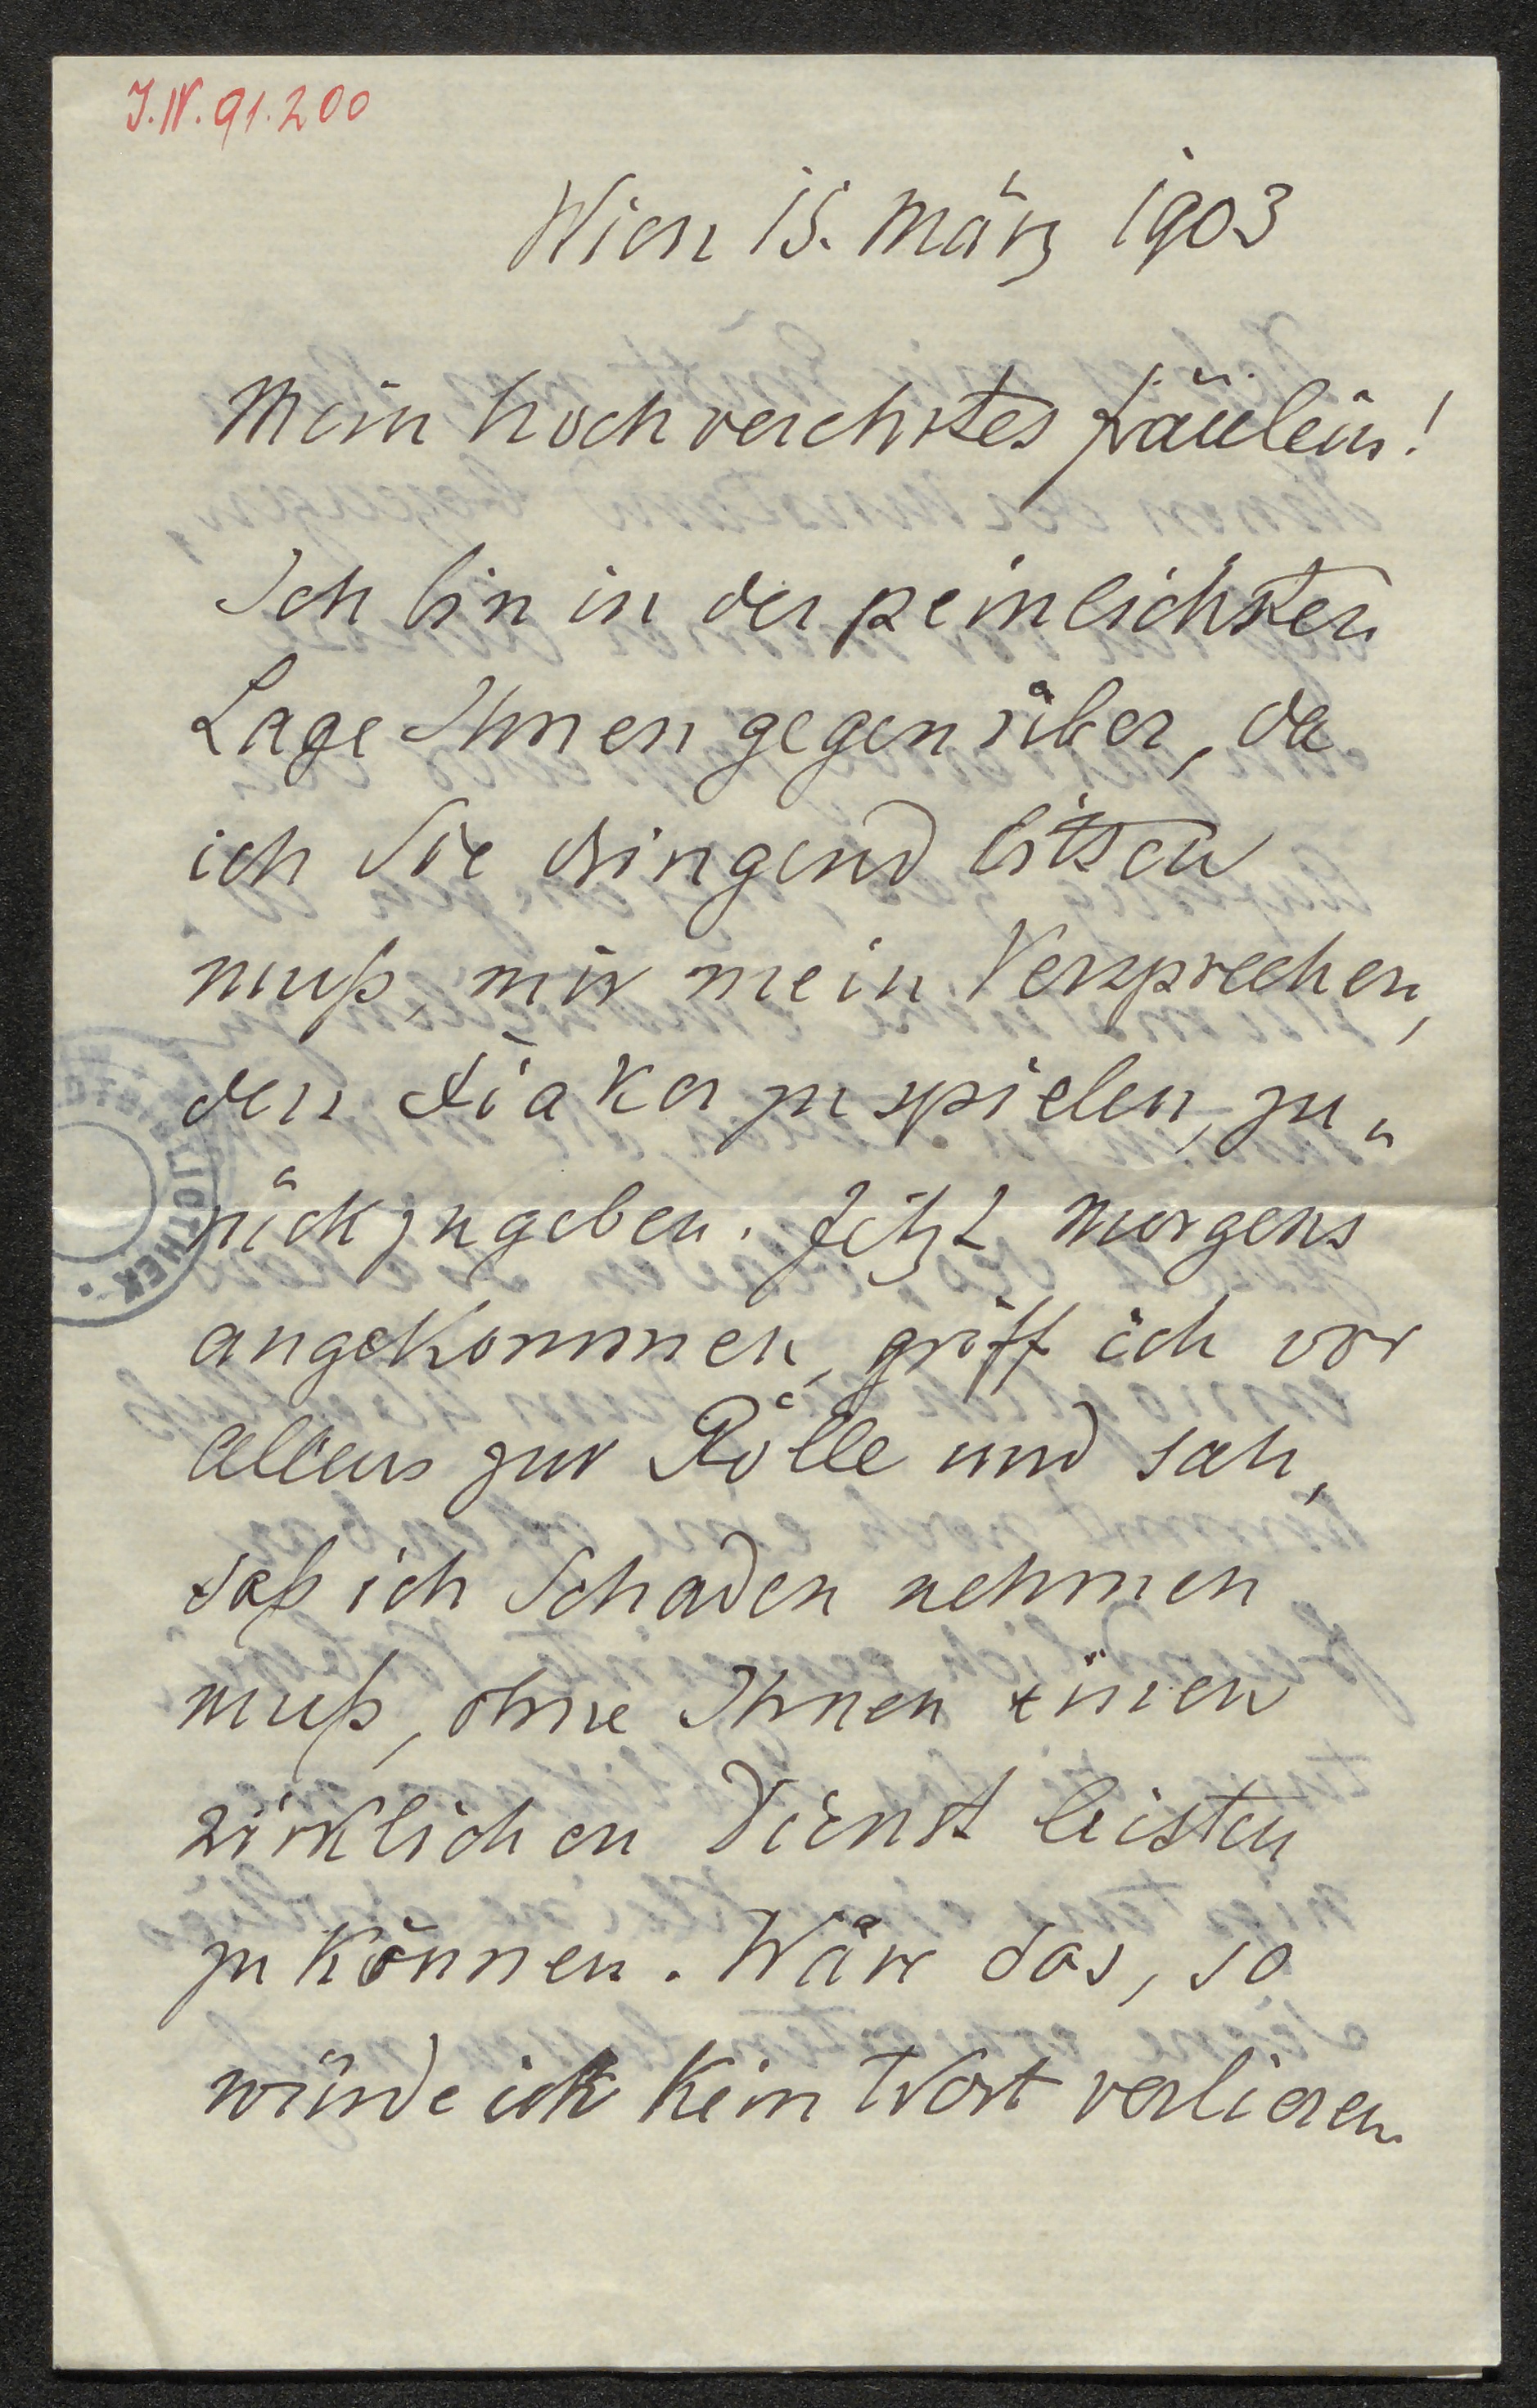 J.N. 91.200
Wien 15. März 1903
Mein hochverehrtes Fräulein!
Ich bin in der peinlichsten
Lage Ihnen gegenüber, da
ich Sie dringend bitten
muß, mir mein Versprechen,
den Fiaker zu spielen, zu„
rückzugeben. Jetzt morgens
angekommen, griff ich vor
allem zur Rolle und sah,
daß ich Schaden nehmen
muß, ohne Ihnen einen
wirklichen Dienst leisten
zu können. Wäre das, so
würde ich kein Wort verlieren.